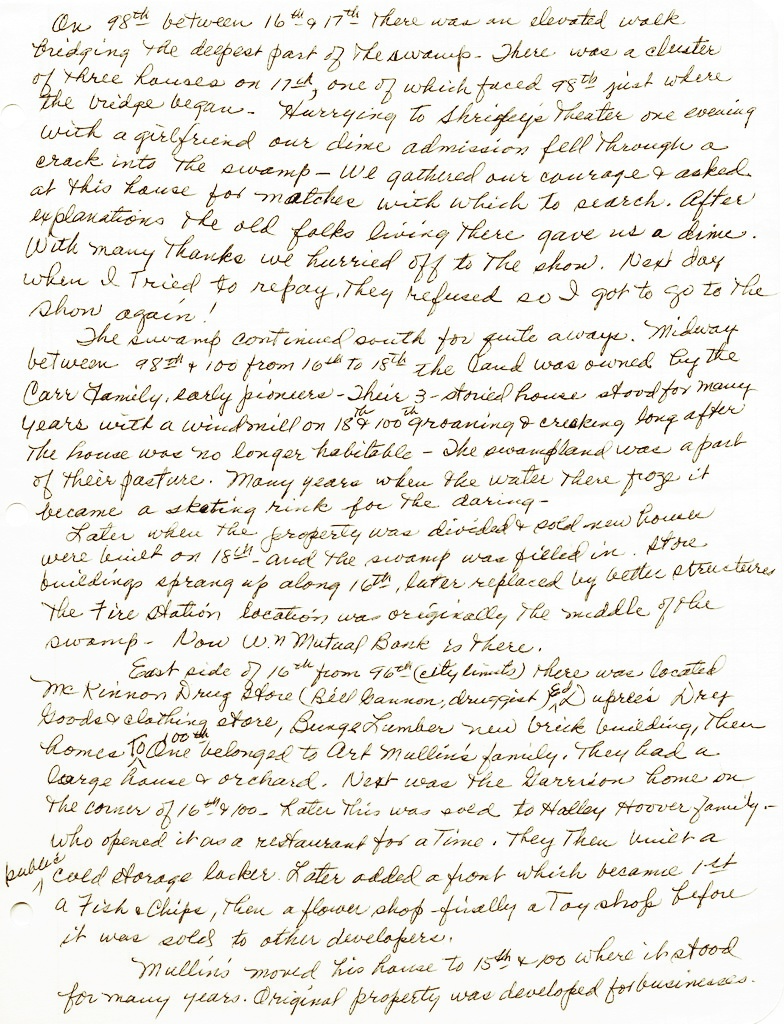 On 98th between 16th & 17th there was an elevated walk
bridging the deepest part of the swamp - There was a cluster
of three houses on 17th, one of which faced 98th just where
the bridge began - Hurrying to Shrigley's Theater one evening
with a girlfriend our dime admission fell through a
crack into the swamp - We gathered our courage & asked
at this house for matches with which to search. After
explanations the old folks living there gave us a dime.
With many thanks we hurried off to the show. Next day
when I tried to repay, they refused so I got to go to the
show again!
The swamp continued south for quite aways. Midway
between 98th & 100 from 16th to 18th the land was owned by the
Carr family, early pioneers - Their 3-storied house stood for many
years with a windmill on 18th & 100th groaning & creaking long after
the house was no longer habitable - The swampland was a part
of their pasture. Many years when the water there froze it
became a skating rink for the daring -
Later when the property was divided & sold new houses
were built on 18th - and the swamp was filled in. Store
buildings sprang up along 16th, later replaced by better structures
The Fire Station location was originally the middle of the
swamp - Now Wn Mutual Bank is there.
East side of 16th from 96th (city limits) there was located
McKinnon Drug Store (Bill Cannon, druggist) Ed Duprees Dry
Goods & clothing store, Bunge Lumber new brick building, then
homes to 100th One belonged to Art Mullin's family. They had a
large house & orchard. Next was the Garrison home on
the corner of 16th & 100 - Later this was sold to Halley Hoover family -
who opened it as a restaurant for a time. They then built a
public cold storage locker. Later added a front which became 1st
a Fish & Chips, then a flower shop - finally a Toy shop before
it was sold to other developers.
Mullin's moved his house to 15th & 100 where it stood
for many years. Original property was developed for businesses.